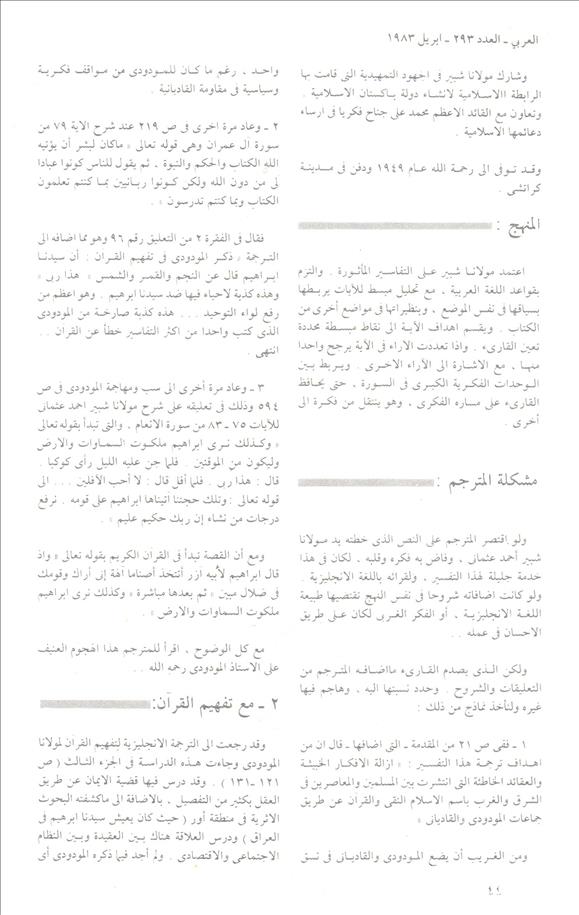 العربي - العدد ٢٩٣ - ابريل ١٩٨٣
وشارك مولانا شبير في اجهود التمهيدية التي قامت بها
الرابطة الاسلامية لانشاء دولة باكستان الاسلامية .
وتعاون مع القائد الاعظم محمد على جناح فكريا في ارساء
دعائمها الاسلامية .
وقد توفى الى رحمة الله عام ١٩٤٩ ودفن في مدينة
كراتشى .
المنهج :
اعتمد مولانا شبير على التفاسير المأثورة . والتزم
بقواعد اللغة العربية ، مع تحليل مبسط للآيات يربطها
بسياقها في نفس الموضع ، وبنظيراتها في مواضع أخرى من
الكتاب . ويقسم اهداف الآية الى نقاط مبسطة محددة
تعين القارىء . واذا تعددت الآراء في الآية يرجح واحدا
منها ، مع الاشارة الى الآراء الاخرى . ويربط بين
الوحدات الفكرية الكبرى في السورة ، حتى يحافظ
القارىء على مساره الفكرى ، وهو ينتقل من فكرة الى
أخرى .
مشكلة المترجم :
ولو اقتصر المترجم على النص الذى خطته يد مولانا
شبير أحمد عثمانى ، وفاض به فكره وقلبه ، لكان في هذا
خدمة جليلة لهذا التفسير ، ولقرائه باللغة الانجليزية .
ولو كانت اضافاته شروحا في نفس النهج تقتضيها طبيعة
اللغة الانجليزية ، أو الفكر الغربى لكان على طريق
الاحسان في عمله ..
ولكن الذى يصدم القارىء مااضافه المترجم من
التعليقات والشروح . وحدد نسبتها اليه ، وهاجم فيها
غيره ولنأخذ نماذج من ذلك :
١ - ففى ص ٢١ من المقدمة - التى اضافها - قال ان من
اهداف ترجمة هذا التفسير : « ازالة الافكار الخبيثة
والعقائد الخاطئة التى انتشرت بين المسلمين والمعاصرين في
الشرق والغرب باسم الاسلام النقى والقرآن عن طريق
جماعات المودودى والقاديانى »
ومن الغريب أن يضع المودودى والقاديانى في نسق
واحد ، رغم ما كان للمودودى من مواقف فكرية
وسياسية في مقاومة القاديانية .
٢ - وعاد مرة اخرى في ص ٢١٩ عند شرح الآية ٧٩ من
سورة آل عمران وهى قوله تعالى « ماكان لبشر أن يؤتيه
الله الكتاب والحكم والنبوة ، ثم يقول للناس كونوا عبادا
لى من دون الله ولكن كونوا ربانيين بما كنتم تعلمون
الكتاب وبما كنتم تدرسون » .
فقال في الفقرة ٢ من التعليق رقم ٩٦ وهو مما اضافه الى
الترجمة « ذكر المودودى في تفهيم القرآن : أن سيدنا
ابراهيم قال عن النجم والقمر والشمس « هذا ربى »
وهذه كذبة لاحياء فيها ضد سيدنا ابرهيم . وهو اعظم من
رفع لواء التوحيد ... هذه كذبة صارخة من المودودى
الذى كتب واحدا من اكثر التفاسير خطأ عن القرآن ..
انتهى .
٣ - وعاد مرة أخرى الى سب ومهاجمة المودودى في ص
٥٩٤ وذلك في تعليقه على شرح مولانا شبير احمد عثمانى
للآيات ٧٥ - ٨٣ من سورة الانعام ، والتى تبدأ بقوله تعالى
« وكذلك نرى ابراهيم ملكوت السماوات والارض
وليكون من الموقنين . فلما جن عليه الليل رأى كوكبا .
قال : هذا ربى . فلما أفل قال : لا أحب الآفلين ... الى
قوله تعالى : وتلك حجتنا آتيناها ابراهيم على قومه . نرفع
درجات من نشاء إن ربك حكيم عليم » .
ومع أن القصة تبدأ في القرآن الكريم بقوله تعالى « واذ
قال ابراهيم لأبيه آزر أتتخذ أصناما آلهة إنى أراك وقومك
في ضلال مبين » ثم بعدها مباشرة « وكذلك نرى ابراهيم
ملكوت السماوات والارض » .
مع كل الوضوح ، اقرأ للمترجم هذا الهجوم العنيف
على الاستاذ المودودى رحمه الله ..
٢ - مع تفهيم القرآن:
وقد رجعت الى الترجمة الانجليزية لتفهيم القرآن لمولانا
المودودى وجاءت هذه الدراسة في الجزء الثالث ( ص
١٢١ - ١٣١ ) . وقد درس فيها قضية الايمان عن طريق
العقل بكثير من التفصيل . بالاضافة الى ماكشفته البحوث
الاثرية في منطقة أور ( حيث كان يعيش سيدنا ابرهيم في
العراق ) ودرس العلاقة هناك بين العقيدة وبين النظام
الاجتماعى والاقتصادى . ولم أجد فيما ذكره المودودى أى
٤٤